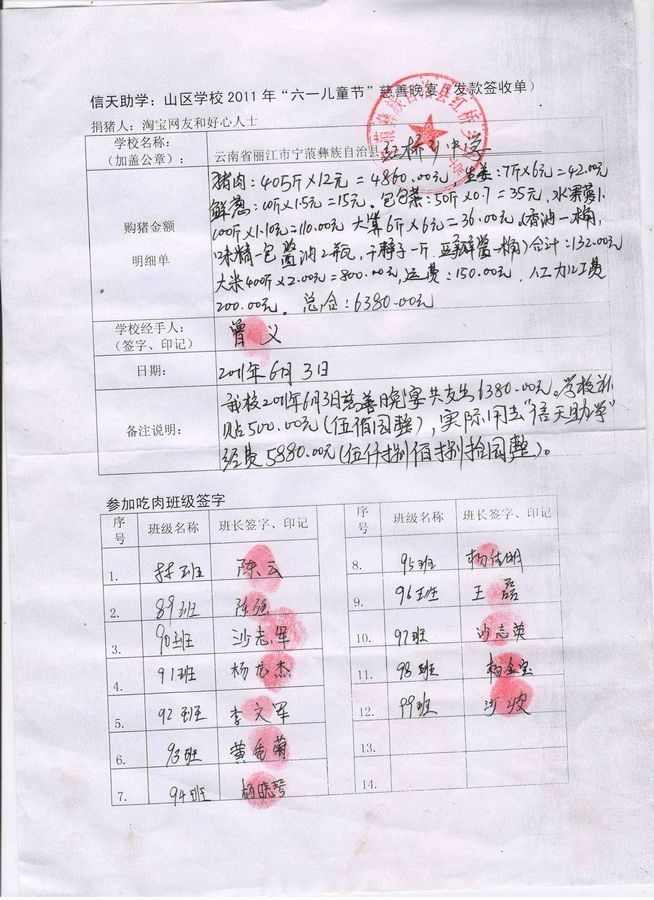 信天助学：山区学校2011年“六一儿童节”慈善晚宴（发款签收单）
捐猪人：淘宝网友和好心人士
学校名称：
（加盖公章）：
云南省丽江市宁蒗彝族自治县红桥乡中学
购猪金额
明细单
猪肉：405斤×12元=4860.00元，生姜：7斤×6元=42.00元
鲜葱：10斤×1.5元=15元。包包菜：50斤×0.7=35元，水果萝卜
100斤×1.10元=110.00元 大蒜6斤×6元=36.00元。(香油一桶，
味精一包 酱油2瓶，干辣子一斤 豆瓣酱一桶)合计：132.00元
大米400斤×2.00元=800.00元，运费：150.00元，人工加工费
200.00元。 总合：6380.00元
学校经手人：
（签字、印记）
曾义
日期：
2011年6月3日
备注说明：
我校2011年6月3日慈善晚宴共支出6380.00元。学校补
贴500.00元(伍佰圆整)，实际用去“信天助学”
经费5880.00元(伍仟捌佰捌拾圆整)。
参加吃肉班级签字
序号 班级名称 班长签字、印记
1. 班 陈云
2. 89班 陈强
3. 90班 沙志军
4. 91班 杨友杰
5. 92班 李文军
6. 93班 黄金菊
7. 94班 杨晓琴
班级名称 班长签字、印记
8. 95班 杨佳明
9. 96班 王磊
10. 97班 沙志英
11. 98班 杨金宝
12. 99班
13.
14.